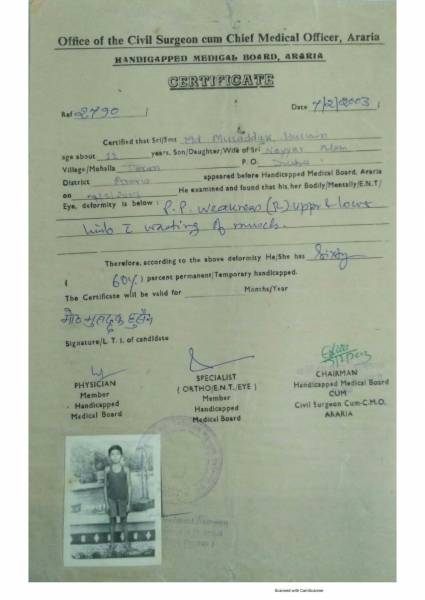 Office of the Civil Surgeon cum Chief Medical Officer, Araria
HANDICAPPED MEDICAL BOARD, ARARIA
CERTIFICATE
Ref 2790
Date 7/2/2003
Certified that Sri/Smt Md
age about years, Son/Daughter/Wife of Sri Alam
Village/Mohalla P.O.
District Araria appeared before Handicapped Medical Board, Araria
on He examined and found that his, her Bodily/Mentally/E.N.T/
Eye, deformity is below : P.P. weakness (R) upper & lower
limb wasting of muscle.
Therefore, according to the above deformity He/She has Sixty
( 60% ) percent permanent/Temporary handicapped.
The Certificate will be valid for Months/Year
Signature/L. T. I. of candidate
PHYSICIAN
Member
Handicapped
Medical Board
SPECIALIST
( ORTHO/E.N.T./EYE )
Member
Handicapped
Medical Board
CHAIRMAN
Handicapped Medical Board
CUM
Civil Surgeon Cum-C.M.O.
ARARIA
Scanned with CamScanner